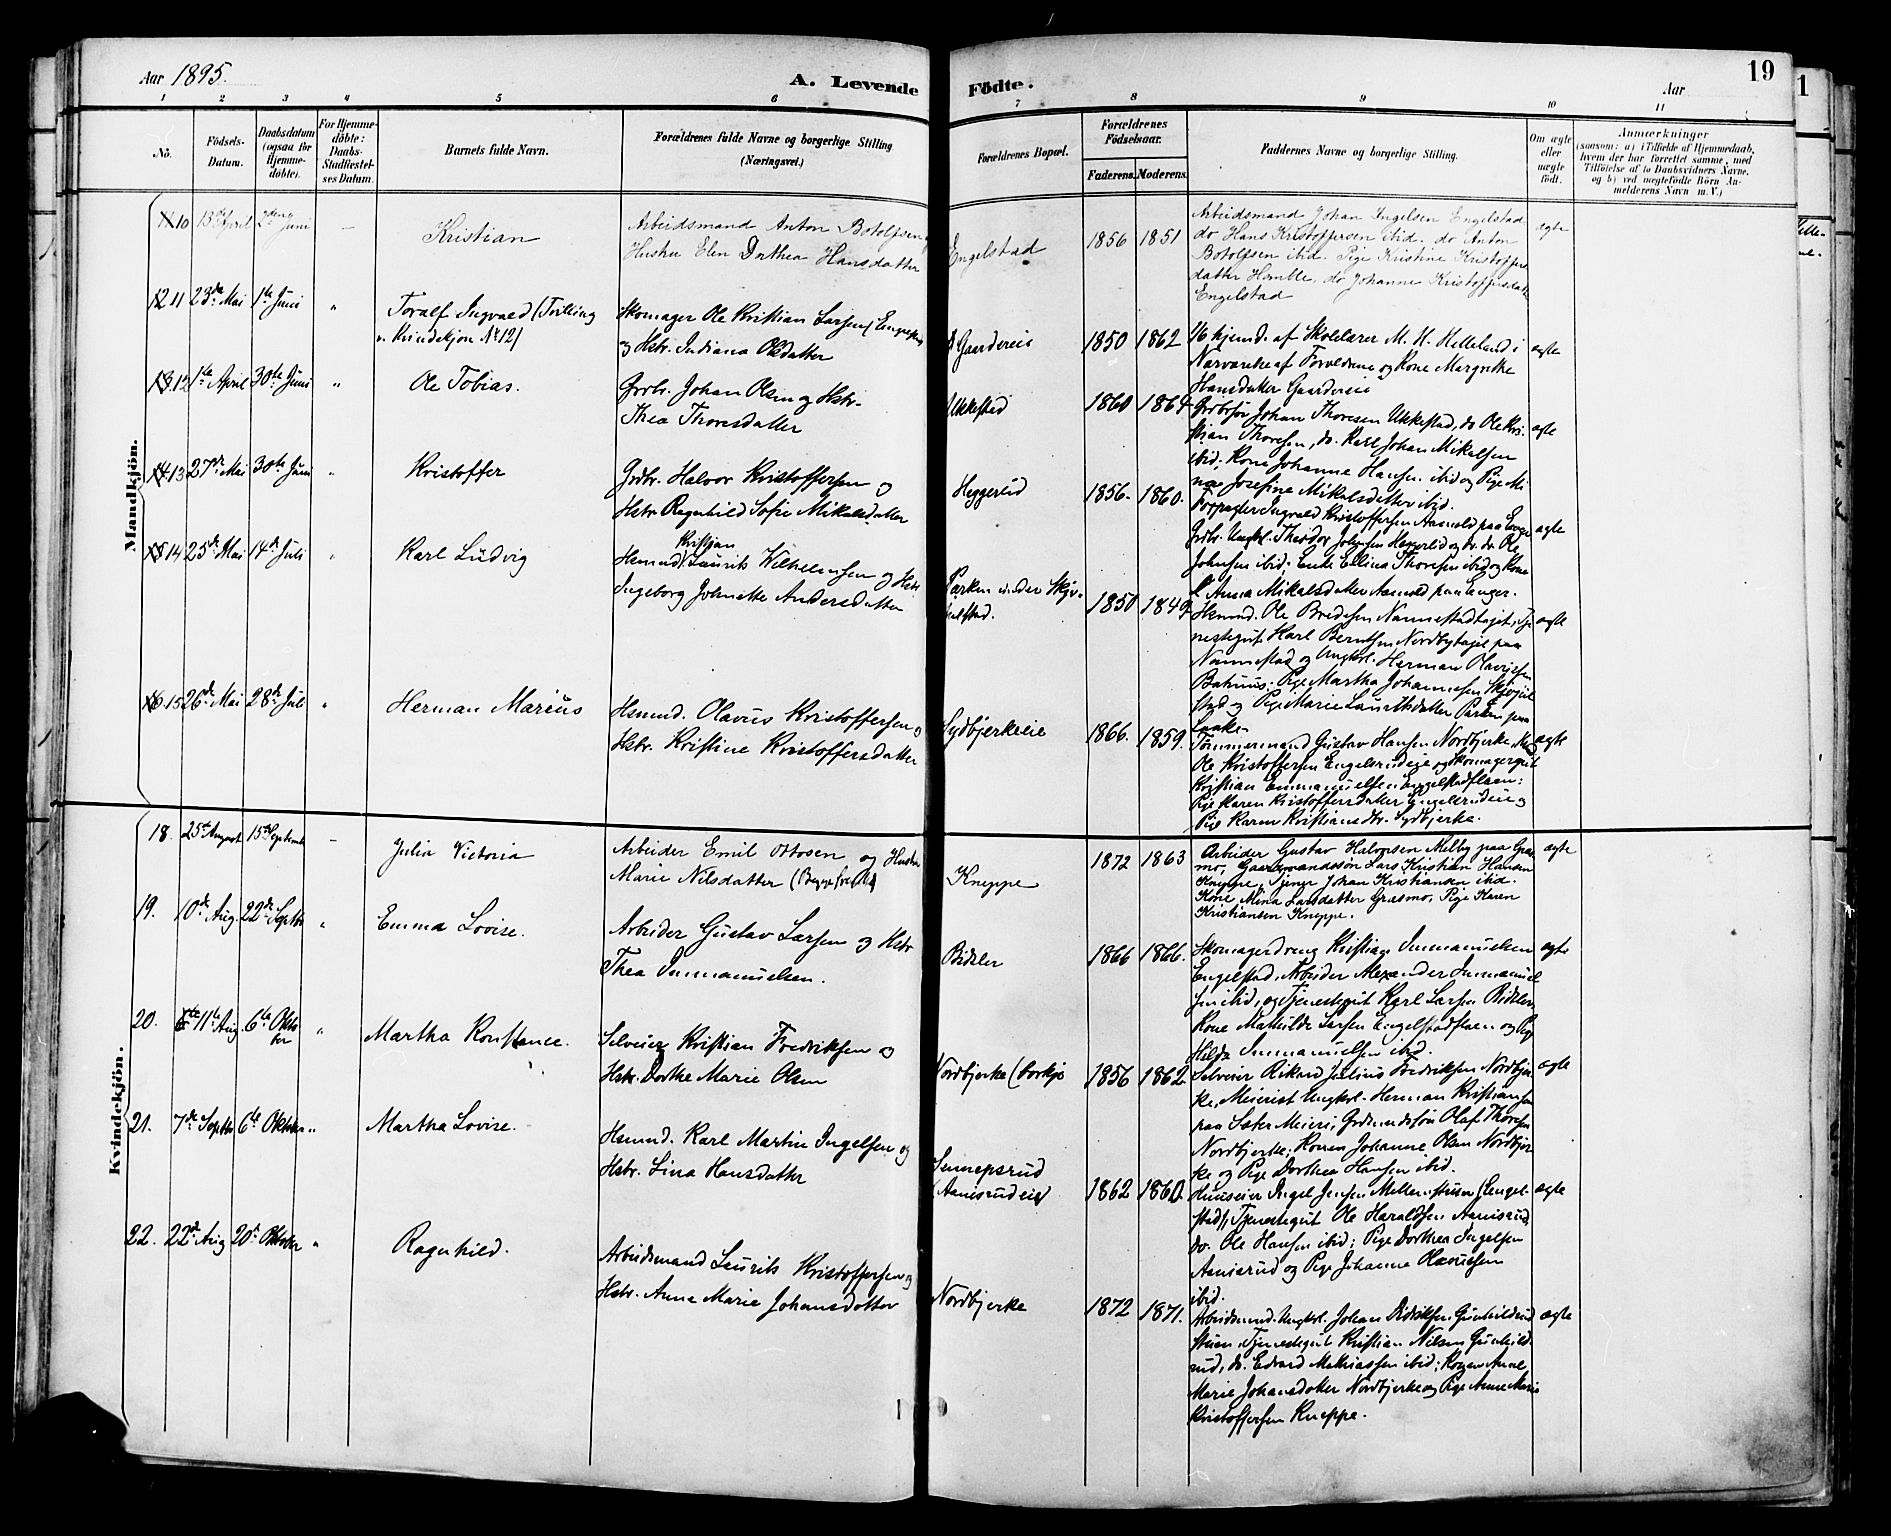 Aar 1895.
A. Levende Födte.
Aar
19
1 2 3 4 5 6 7 8 9 10 11
No.
Födsels-
Datum.
Daabsdatum
(ogsaa for
Hjemme-
döbte).
For Hjemme-
döbte:
Daabs-
Stadfæstel-
ses Datum.
Barnets fulde Navn.
Forældrenes fulde Navne og borgerlige Stilling
(Næringsvei.)
Forældrenes Bopæl.
Forældrenes
Födselsaar.
Faderens. Moderens.
Faddernes Navne og borgerlige Stilling.
Om ægte
eller
uægte
födt.
Anmærkninger
(saasom: a) i Tilfælde af Hjemmedaab,
hvem der har forrettet samme, med
Tilföielse af to Daabsvidners Navne,
og b) ved uægtefödte Börn An-
melderens Navn m. V.)
Mandkjön.
10 13de April 2den Juni –
Kristian
Arbeidsmand Anton Botolfsen
Hustru Elen Dorthea Hansdatter
Engelstad
1856 1851
Arbeidsmand Johan Ingelsen Engelstad
do Hans Kristoffersen ibid. do Anton
Botolfsen ibid. Pige Kristine Kristoffers
datter Homble, do Johanne Kristoffersdatt
Engelstad
ægte
11 23de Mai 1ste Juni "
Toralf Ingvald (Tvilling
v. Kvindekjön No 12)
Skomager Ole Kristian Larsen
og Hstr. Indiana Olsdatter
Gaardereie
1850 1862
hjemd. af Skolelærer M. H. Helleland i
Nærværelse af Forældrene og Kone Margrethe
Hansdatter Gaardereie
ægte
12 1ste April 30te Juni "
Ole Tobias.
Grdbr. Johan Olsen og Hstr.
Thea Thoresdatter
Ukkestad
1860 1864
Grdbrsön Johan Thoresen Ukkestad, do Ole Kri-
stian Thoresen, do. Karl Johan Mikalsen
ibid. Kone Johanne Hansen ibid og Pige Mi-
na Josefine Mikalsdatter ibid.
ægte
13 27de Mai 30te Juni "
Kristoffer
Grdbr. Halvor Kristoffersen og
Hstr. Ragnhild Sofie Mikalsdatter
Heggerlid
1856. 1860.
Forpagter Ingvald Kristoffersen Aamold paa Enger
Grdbr. Ungkl. Theodor Johnsen Heggerlid og do. do. Ole
Johnsen ibid; Enke Ellina Thoresen ibid og Kone
Anna Mikalsdatter Aamold paa Enger.
ægte
14 25de Mai 14de Juli "
Karl Ludvig
Hsmnd. Kristian Laurits Wilhelmsen og Hstr
Ingeborg Johnette Andersdatter
Parken under Skjø-
1850 1849
Hsmnd. Ole Bredesen Nannestadtajet, Tje-
nestegut Karl Berntsen Nordbytajet paa
Nannestad og Ungkl. Herman Olavsen
Pige Martha Johannesen
stad og Pige Marie Lauritsdatter Parken paa
ægte
15 26de Mai 28de Juli "
Herman Marius
Hsmnd. Olavus Kristoffersen og
Hstr. Kristine Kristoffersdatter
Sydbjerkeeie
1866. 1859.
Tømmermand Gustav Hansen Nordbjerke,
Ole Kristoffersen Engelsrudeie og Skomagergut
Kristian Emmanuelsen Engelstadflaen;
Pige Karen Kristoffersdatter Engelsrudeie og
Pige Karen Kristiansdtr. Sydbjerke.
ægte
Kvindekjön.
18. 25de August 15de September –
Julia Victoria
Arbeider Emil Ottosen og Hustru
Marie Nilsdatter
Kneppe
1872 1863
Arbeider Gustav Halvorsen Melby paa Gras-
mo, Gaardmandssön Lars Kristian Hansen
Kneppe, Tjener Johan Kristiansen ibid.
Kone Mina Larsdatter Grasmo, Pige Karen
Kristiansen Kneppe.
ægte
19. 10de Aug. 22de Septbr "
Emma Lovise.
Arbeider Gustav Larsen og Hstr
Thea Immanuelsen.
Bidsler
1866 1866.
Skomagerdreng Kristian Immanuelsen
Engelstad, Arbeider Alexander Immanuel
sen ibid, og Tjenestegut Karl Larsen Bidsler
Kone Mathilde Larsen Engelstadflaen og Pige
Hilda Immanuelsen ibid.
ægte
20. 11te Aug. 6te Okto-
ber "
Martha Konstance.
Selveier Kristian Fredriksen og
Hstr. Dorthe Marie Olsen
Nordbjerke
1856 1862
Selveier Rikard Julius Fredriksen Nordbjer-
ke, Meierist Ungkl. Herman Kristiansen
paa Sæter Meieri, Grdmandssön Olaf Thoresen
Nordbjerke; Konen Johanne Olsen Nordbjer-
ke og Pige Dorthea Hansen ibid.
ægte
21. 7de Septbr 6te Oktober "
Martha Lovise.
Hsmnd. Karl Martin Ingelsen og
Hstr. Lina Hansdatter
Sennepsrud
(Aanisrudeie)
1862 1860
Huuseier Ingel Jensen Mellemstuen (Engel-
stad), Tjenestegut Ole Haraldsen Aanisrud,
do. Ole Hansen ibid; Pige Dorthea Ingelsen
Aanisrud og Pige Johanne Olavusen
ibid.
ægte
22. 22de Aug 20de Oktober "
Ragnhild.
Arbeidsmand Laurits Kristoffersen og
Hstr. Anne Marie Johansdatter
Nordbjerke
1872 1871.
Arbeidsmnd. Ungkl. Johan Didriksen Gunhildrud
stuen, Tjenestegut Kristian Nilsen Gunhild-
rud, do. Edvard Mathiassen ibid; Konen Anne
Marie Johansdatter Nordbjerke og Pige Anne Marie
Kristoffersen Kneppe.
ægte